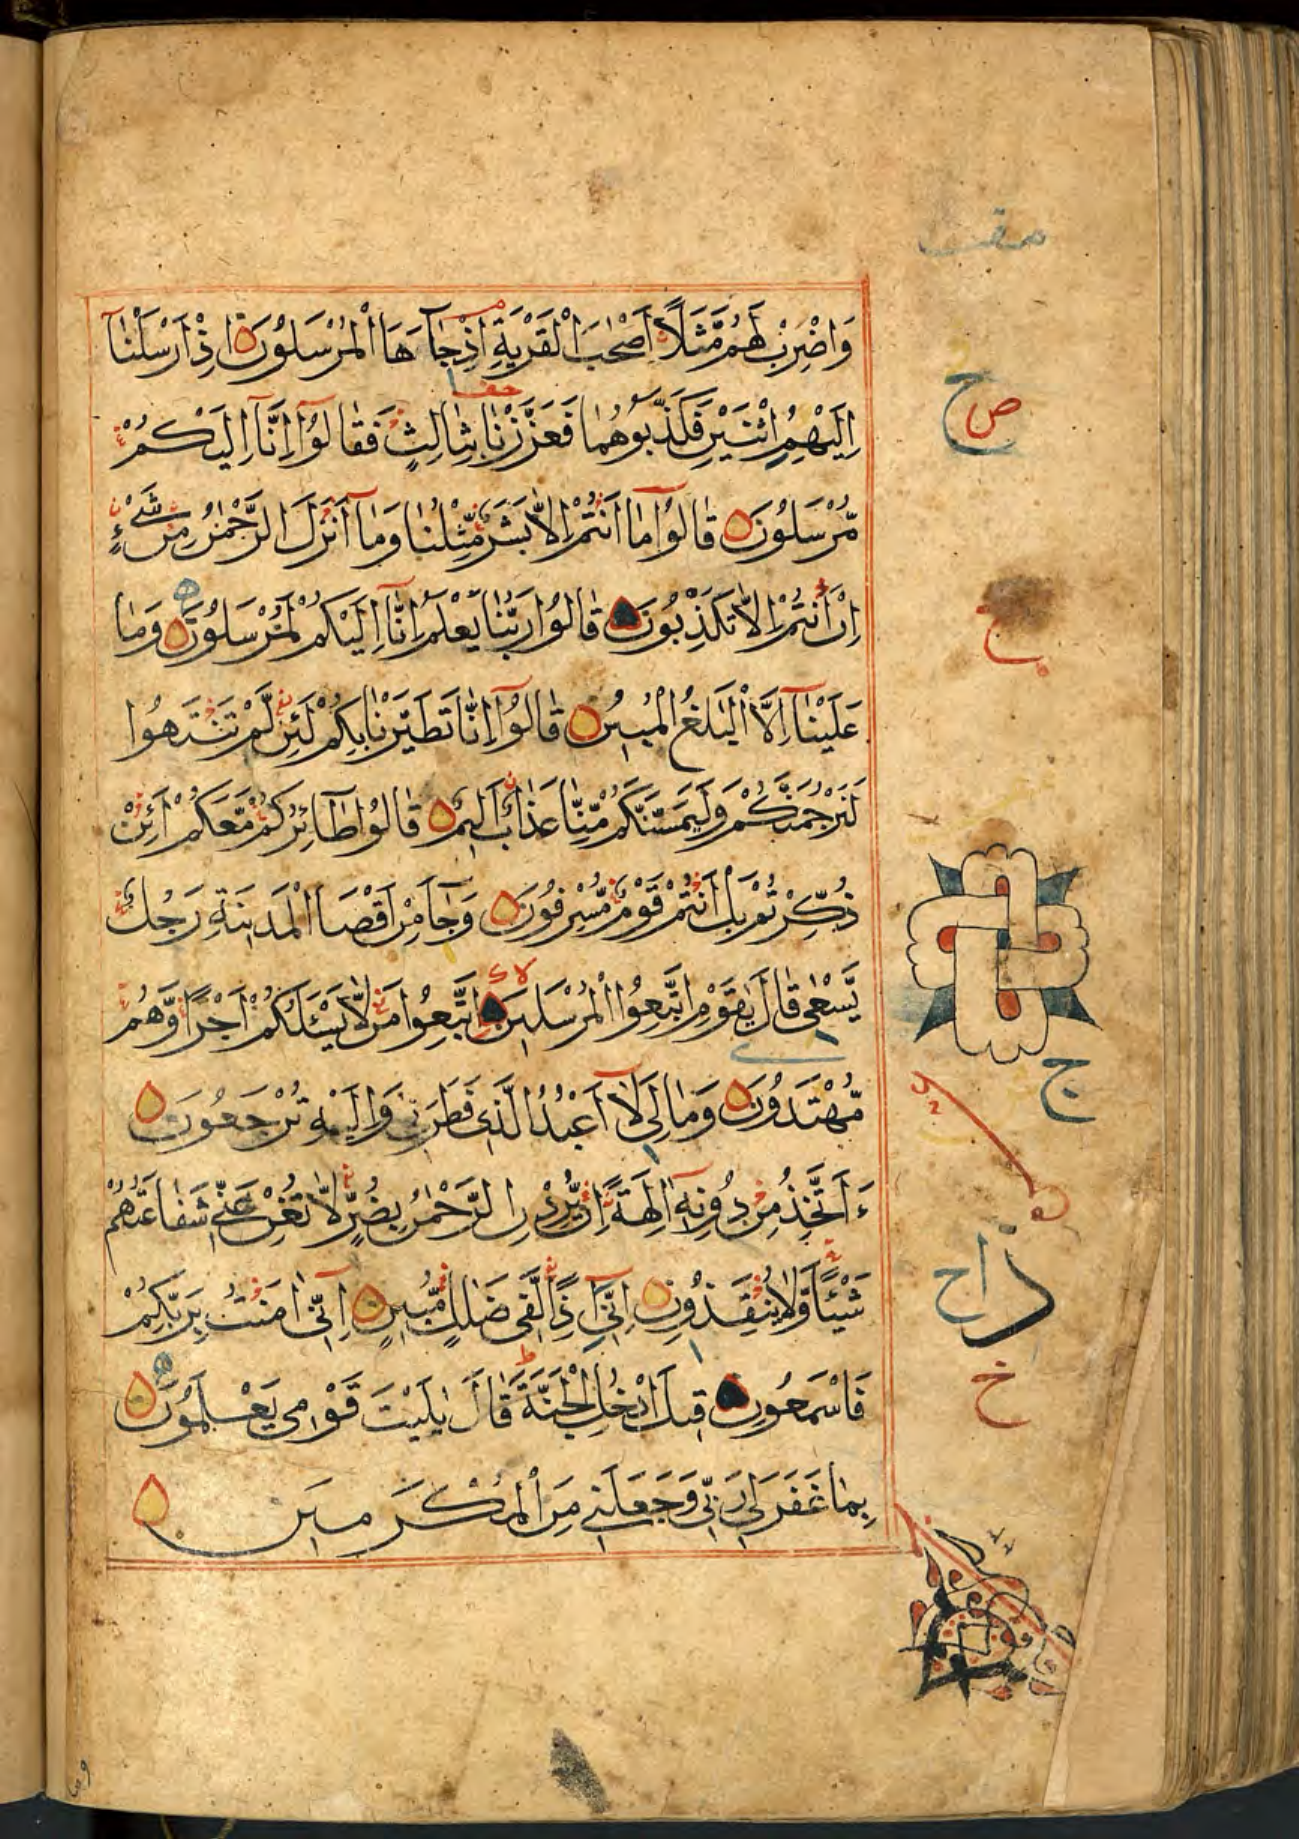 وَاضْرِبْ لَهُم مَّثَلًا اَصْحٰبَ الْقَرْيَةِ اِذْ جَآءَهَا الْمُرْسَلُوْنَ اِذْ اَرْسَلْنَآ
اِلَيْهِمُ اثْنَيْنِ فَكَذَّبُوْهُمَا فَعَزَّزْنَا بِثَالِثٍ فَقَالُوْٓا اِنَّآ اِلَيْكُمْ
مُّرْسَلُوْنَ قَالُوْا مَآ اَنْتُمْ اِلَّا بَشَرٌ مِّثْلُنَا وَمَآ اَنْزَلَ الرَّحْمٰنُ مِنْ شَيْءٍ
اِنْ اَنْتُمْ اِلَّا تَكْذِبُوْنَ قَالُوْا رَبُّنَا يَعْلَمُ اِنَّآ اِلَيْكُمْ لَمُرْسَلُوْنَ وَمَا
عَلَيْنَآ اِلَّا الْبَلٰغُ الْمُبِيْنُ قَالُوْٓا اِنَّا تَطَيَّرْنَا بِكُمْ لَئِنْ لَّمْ تَنْتَهُوْا
لَنَرْجُمَنَّكُمْ وَلَيَمَسَّنَّكُمْ مِّنَّا عَذَابٌ اَلِيْمٌ قَالُوْا طَآئِرُكُمْ مَّعَكُمْ اَئِنْ
ذُكِّرْتُمْ بَلْ اَنْتُمْ قَوْمٌ مُّسْرِفُوْنَ وَجَآءَ مِنْ اَقْصَا الْمَدِيْنَةِ رَجُلٌ
يَّسْعٰى قَالَ يٰقَوْمِ اتَّبِعُوا الْمُرْسَلِيْنَ اتَّبِعُوْا مَنْ لَّا يَسْـَٔلُكُمْ اَجْرًا وَّهُمْ
مُّهْتَدُوْنَ وَمَا لِيَ لَآ اَعْبُدُ الَّذِيْ فَطَرَنِيْ وَاِلَيْهِ تُرْجَعُوْنَ
ءَاَتَّخِذُ مِنْ دُوْنِهٖٓ اٰلِهَةً اِنْ يُّرِدْنِ الرَّحْمٰنُ بِضُرٍّ لَّا تُغْنِ عَنِّيْ شَفَاعَتُهُمْ
شَيْـًٔا وَّلَا يُنْقِذُوْنِ اِنِّيْٓ اِذًا لَّفِيْ ضَلٰلٍ مُّبِيْنٍ اِنِّيْٓ اٰمَنْتُ بِرَبِّكُمْ
فَاسْمَعُوْنِ قِيْلَ ادْخُلِ الْجَنَّةَ قَالَ يٰلَيْتَ قَوْمِيْ يَعْلَمُوْنَ
بِمَا غَفَرَ لِيْ رَبِّيْ وَجَعَلَنِيْ مِنَ الْمُكْرَمِيْنَ